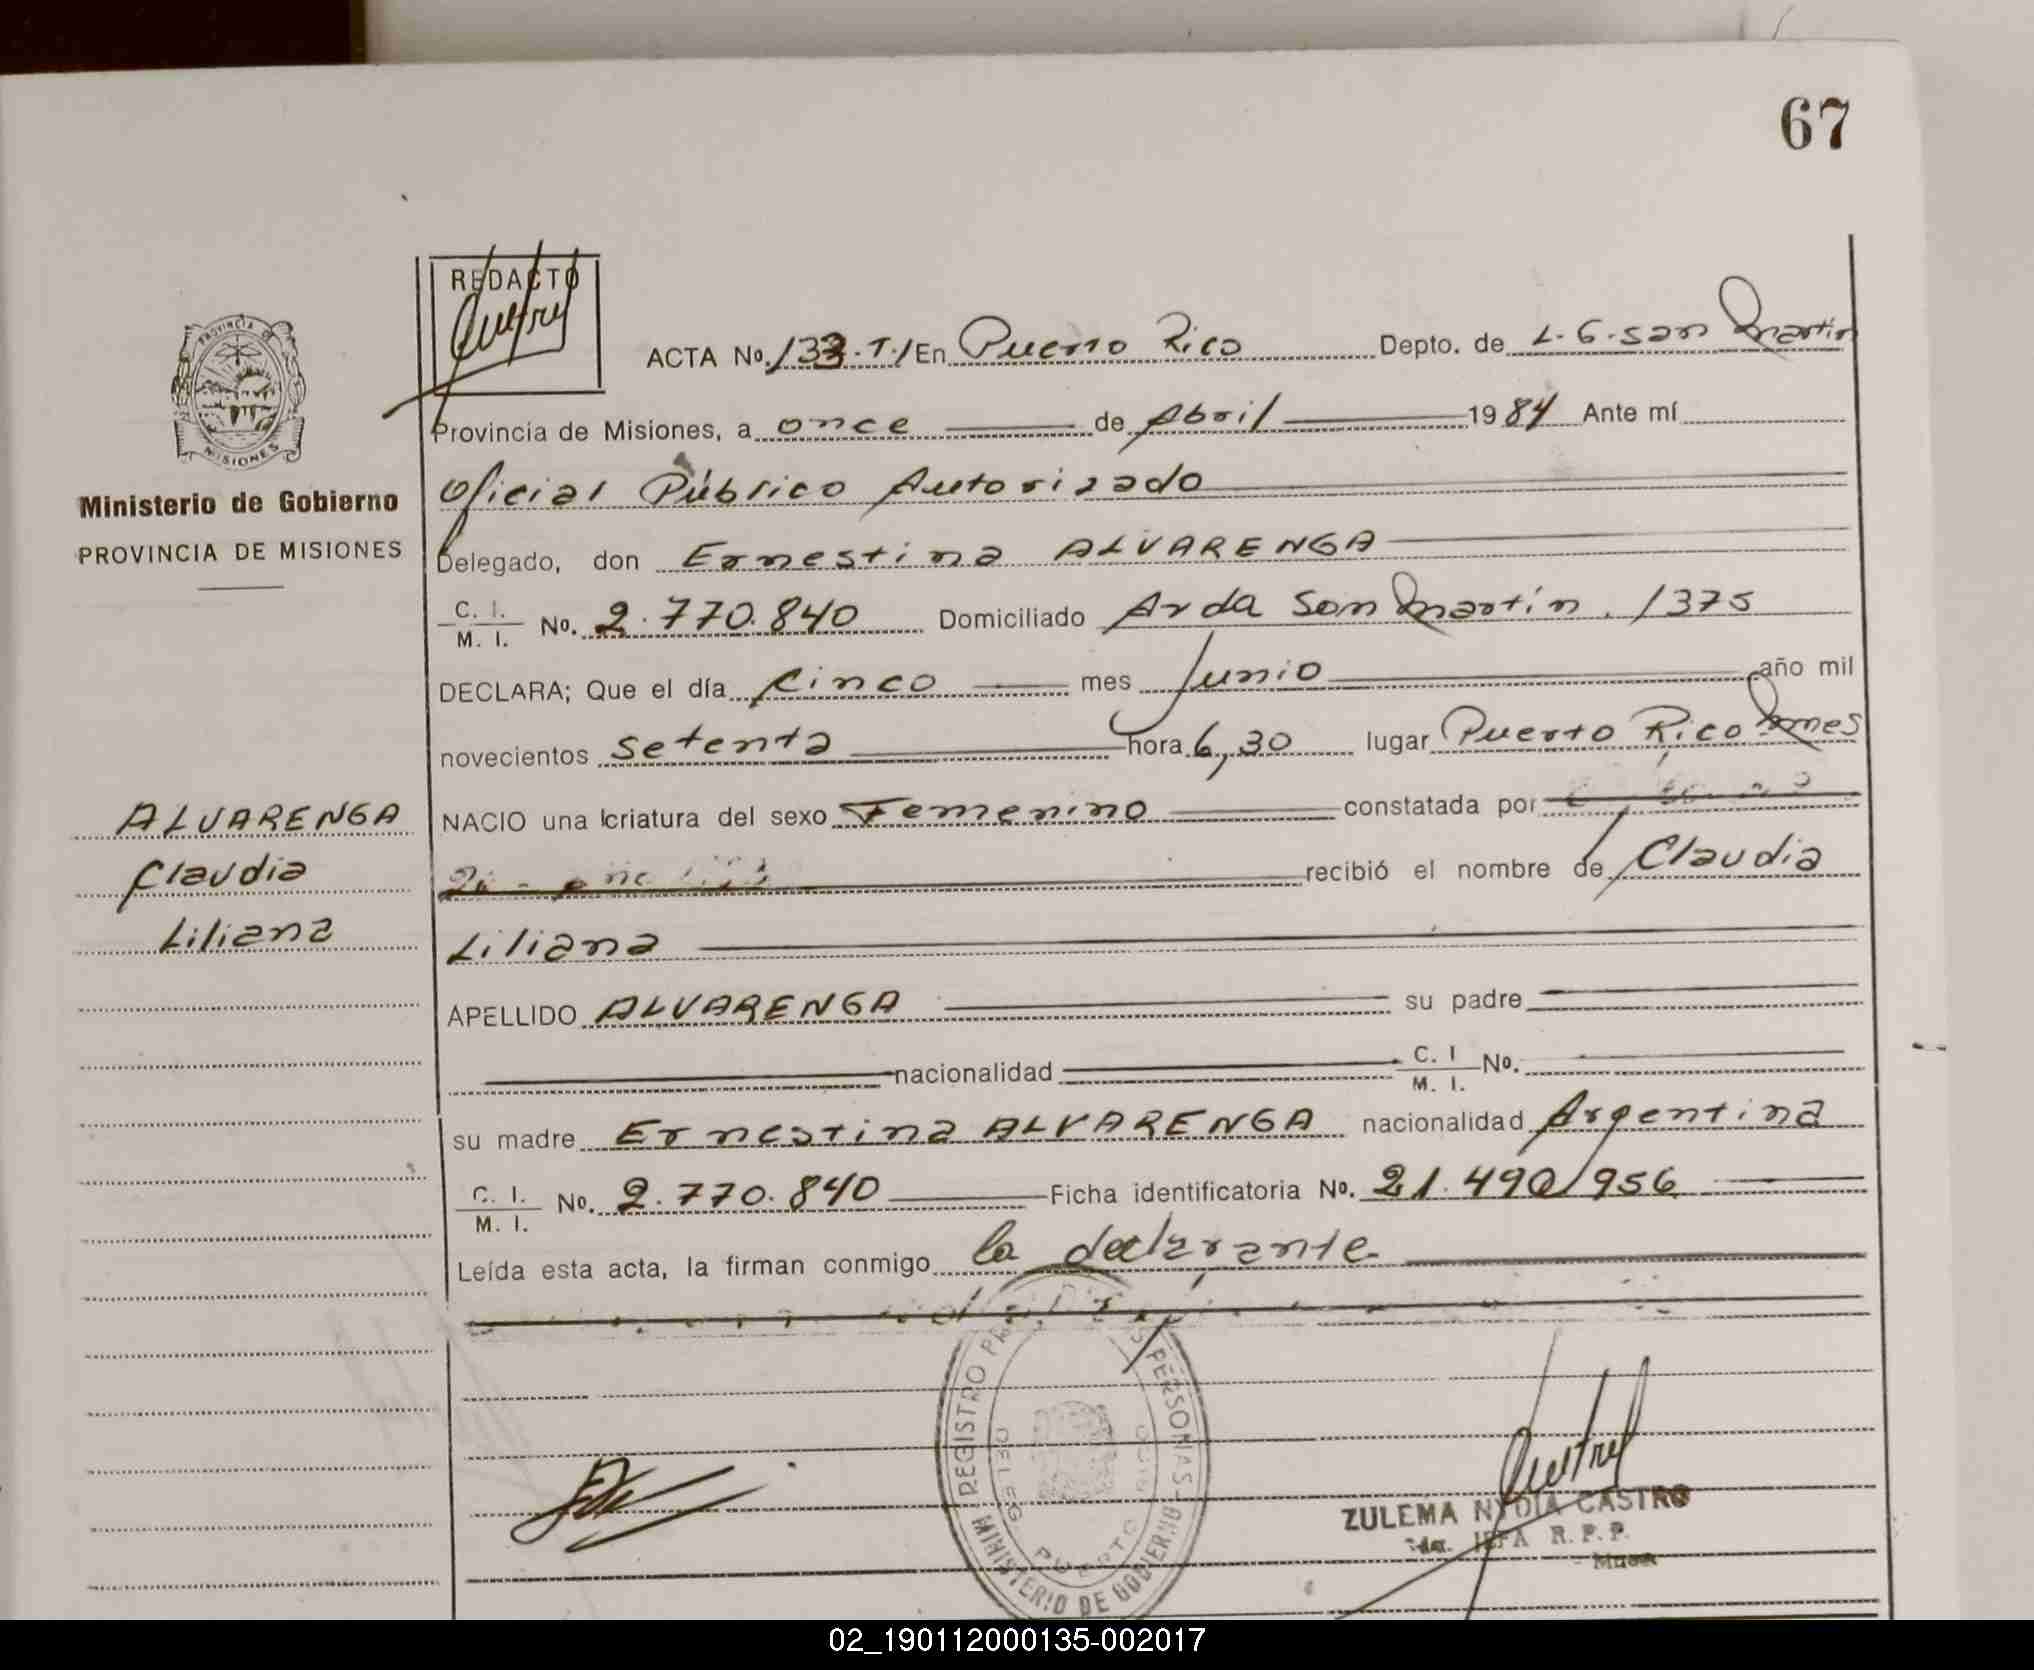 67
REDACTO
PROVINCIA DE
MISIONES
Ministerio de Gobierno
PROVINCIA DE MISIONES
ALVARENGA
Claudia
Liliana
ACTA No. 133.T.I En Puerto Rico Depto. de L.G.San Martin
Provincia de Misiones, a once de Abril 1984 Ante mí
Oficial Público Autorizado
Delegado, don Ernestina ALVARENGA
C. I. / M. I. No. 2.770.840 Domiciliado Avda San Martín. 1375
DECLARA; Que el día cinco mes Junio año mil
novecientos setenta hora 6,30 lugar Puerto Rico Mnes
NACIO una criatura del sexo Femenino constatada por
recibió el nombre de Claudia
Liliana
APELLIDO ALVARENGA su padre
nacionalidad C. I / M. I. No.
su madre Ernestina ALVARENGA nacionalidad Argentina
C. I. / M. I. No. 2.770.840 Ficha identificatoria No. 21.490/956
Leída esta acta, la firman conmigo la declarante
REGISTRO PERSONAS - MINISTERIO DE GOBIERNO
DELEG. PUERTO RICO
ZULEMA NYDIA CASTRO
JEFA R. P. P.
02_190112000135-002017